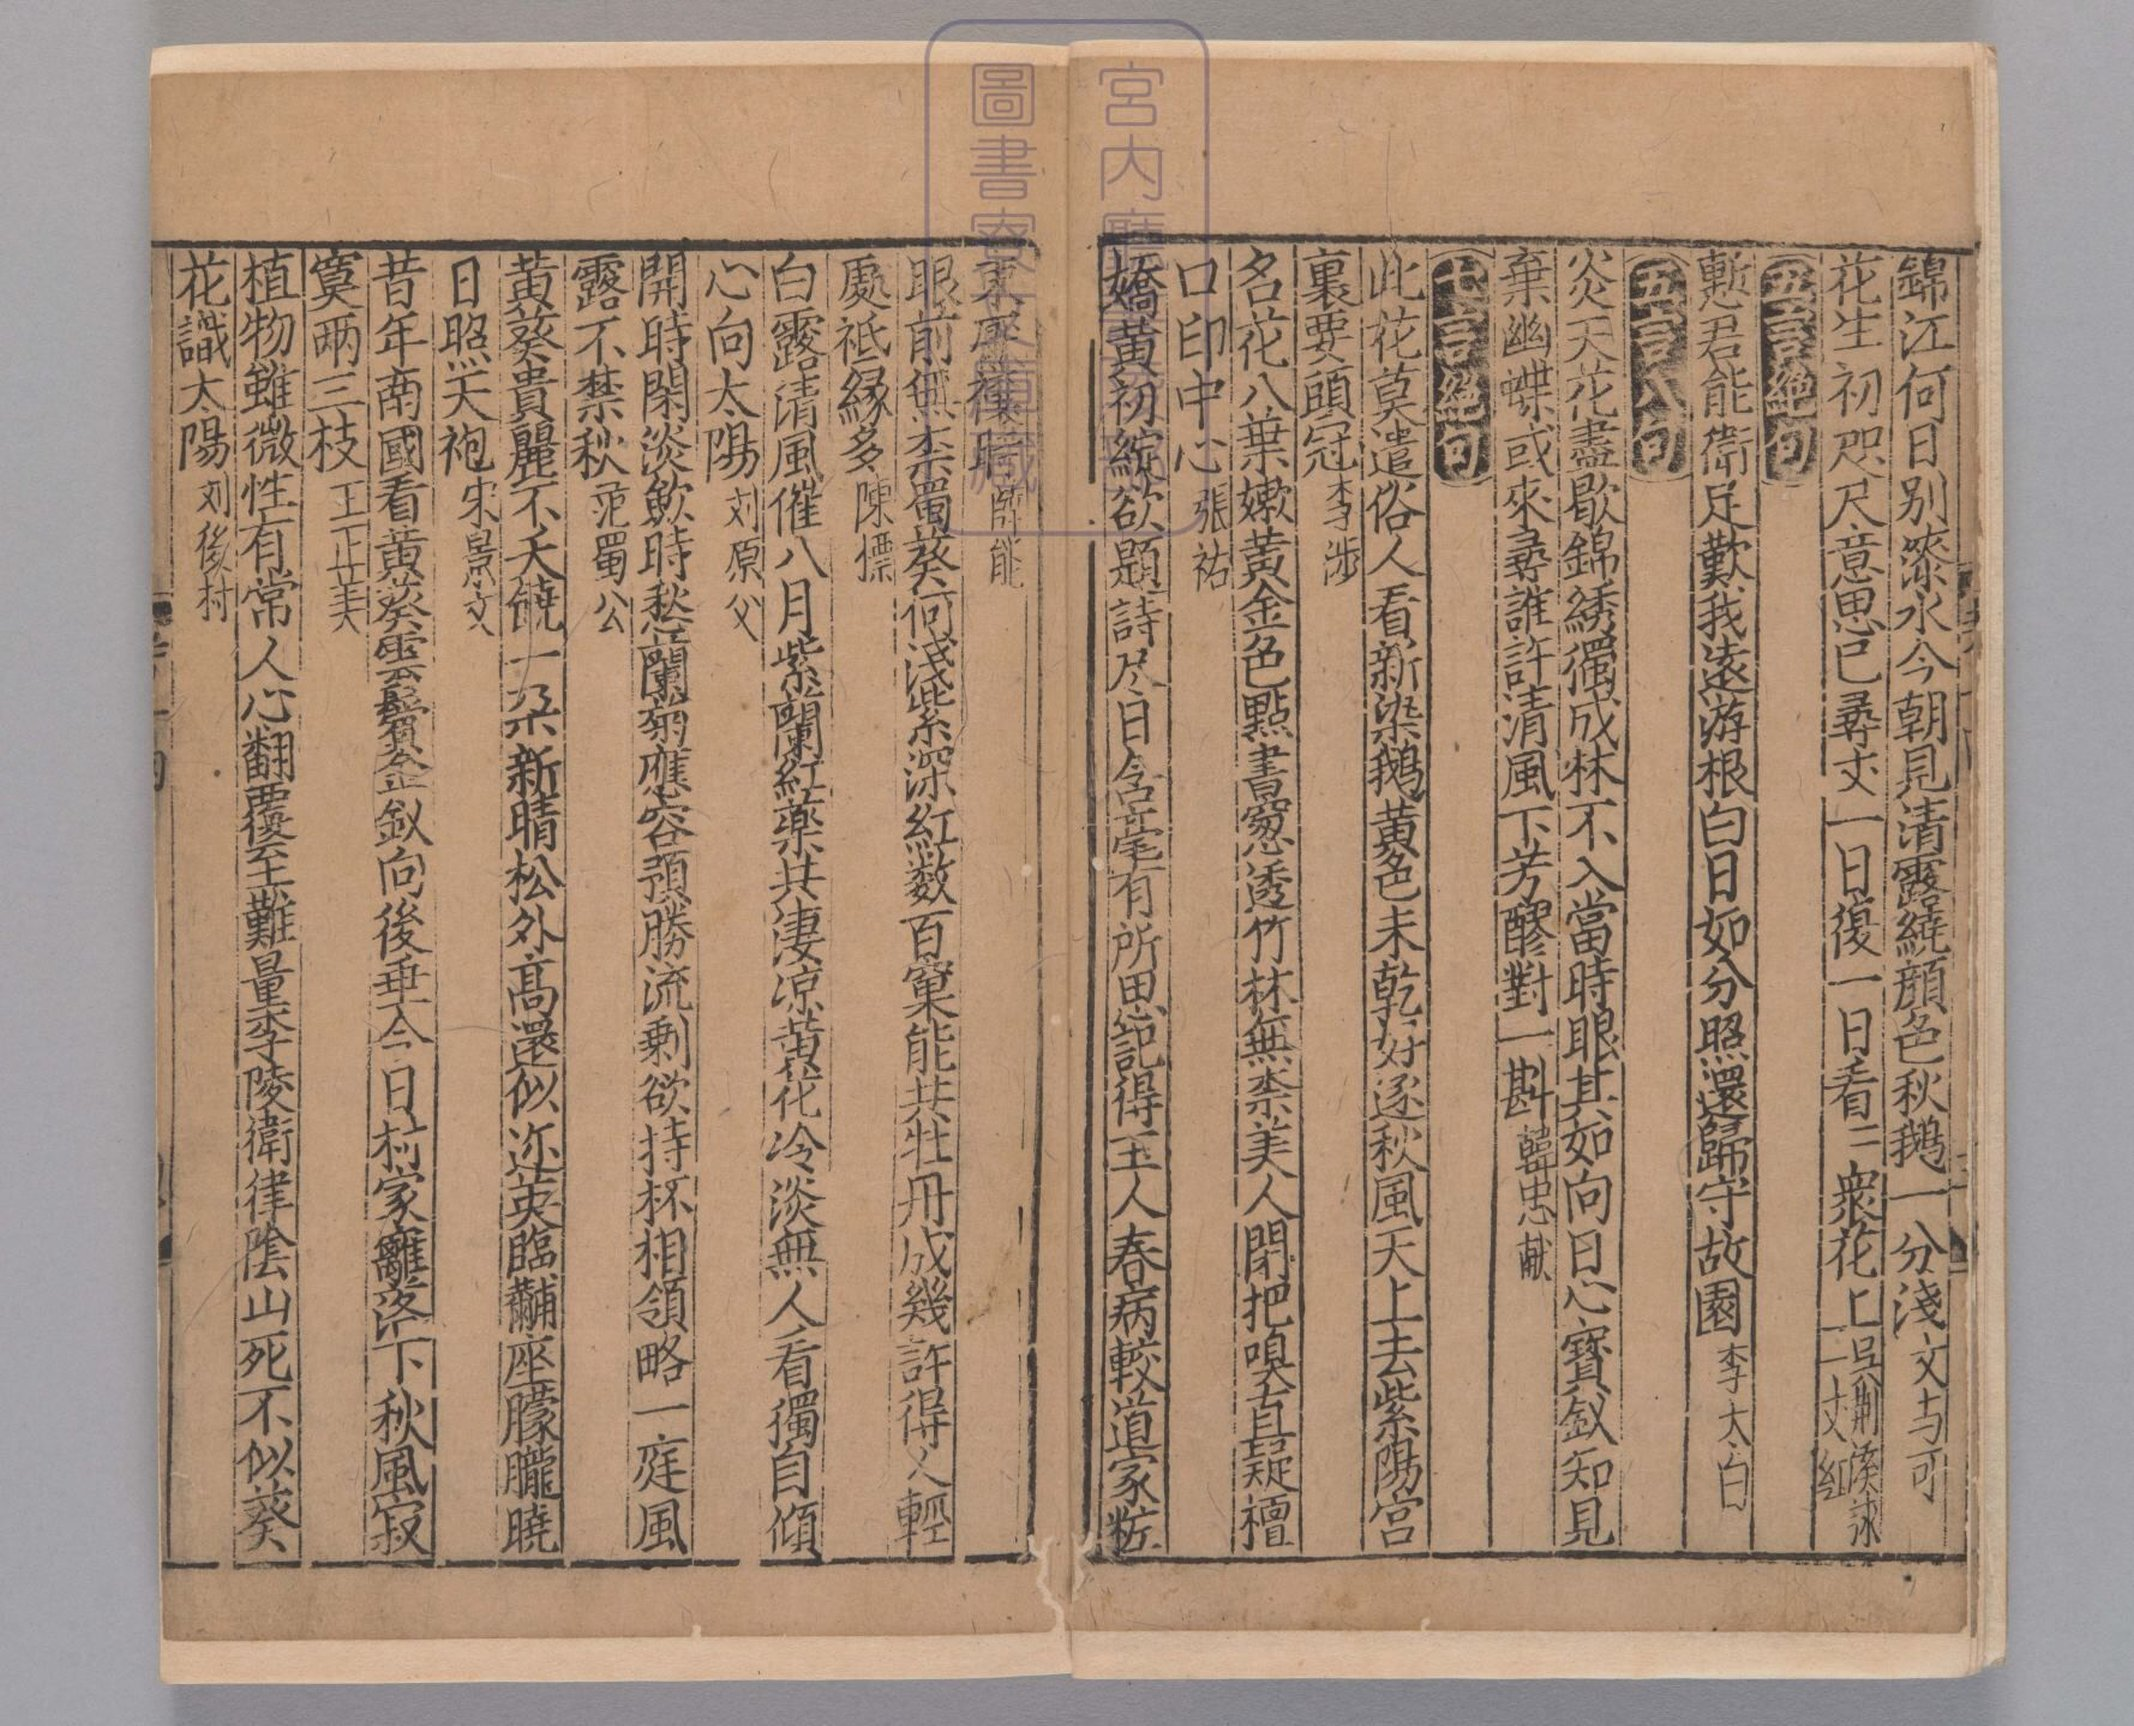 錦江何日别滁水今朝見清露繞顔色秋鵝一分淺文与可
花生初咫尺意思已尋丈一日復一日看二衆花上吳荆溪詠一丈紅
五言絶句
慙君能衛足歎我遠游根白日如分照還歸守故園李太白
五言八句
炎天花盡歇錦綉獨成林不入當時眼其如向日心寳釵知見
棄幽蝶或來尋誰許清風下芳醪對一斟韓忠献
七言絶句
此花莫遣俗人看新染鵝黄色未乾好逐秋風天上去紫陽宮
裏要頭冠李涉
名花八葉嫩黄金色點書窓透竹林無柰美人閉把嗅直疑檀
口印中心張祐
嬌黄初綻欲題詩尽日含毫有所思記得玉人春病較道家粧
束厭禳時薛能
眼前無柰蜀葵何淺紫深紅数百窠能共牡丹成幾許得人輕
處祗縁多陳慓
白露清風催八月紫蘭紅藥共凄凉黄花冷淡無人看獨自傾
心向太陽刘原父
開時閑淡歛時愁蘭菊應容預勝流剩欲持杯相領略一庭風
露不禁秋范蜀公
黄葵貴麗不夭饒一朶新晴松外高還似迩英臨黼座朦朧曉
日照天袍宋景文
昔年南國看黄葵雲鬢金釵向後垂今日村家籬落下秋風寂
寞兩三枝王正美
植物雖微性有常人心翻覆至難量李陵衛律陰山死不似葵
花識太陽刘後村
宮内廳
圖書寮